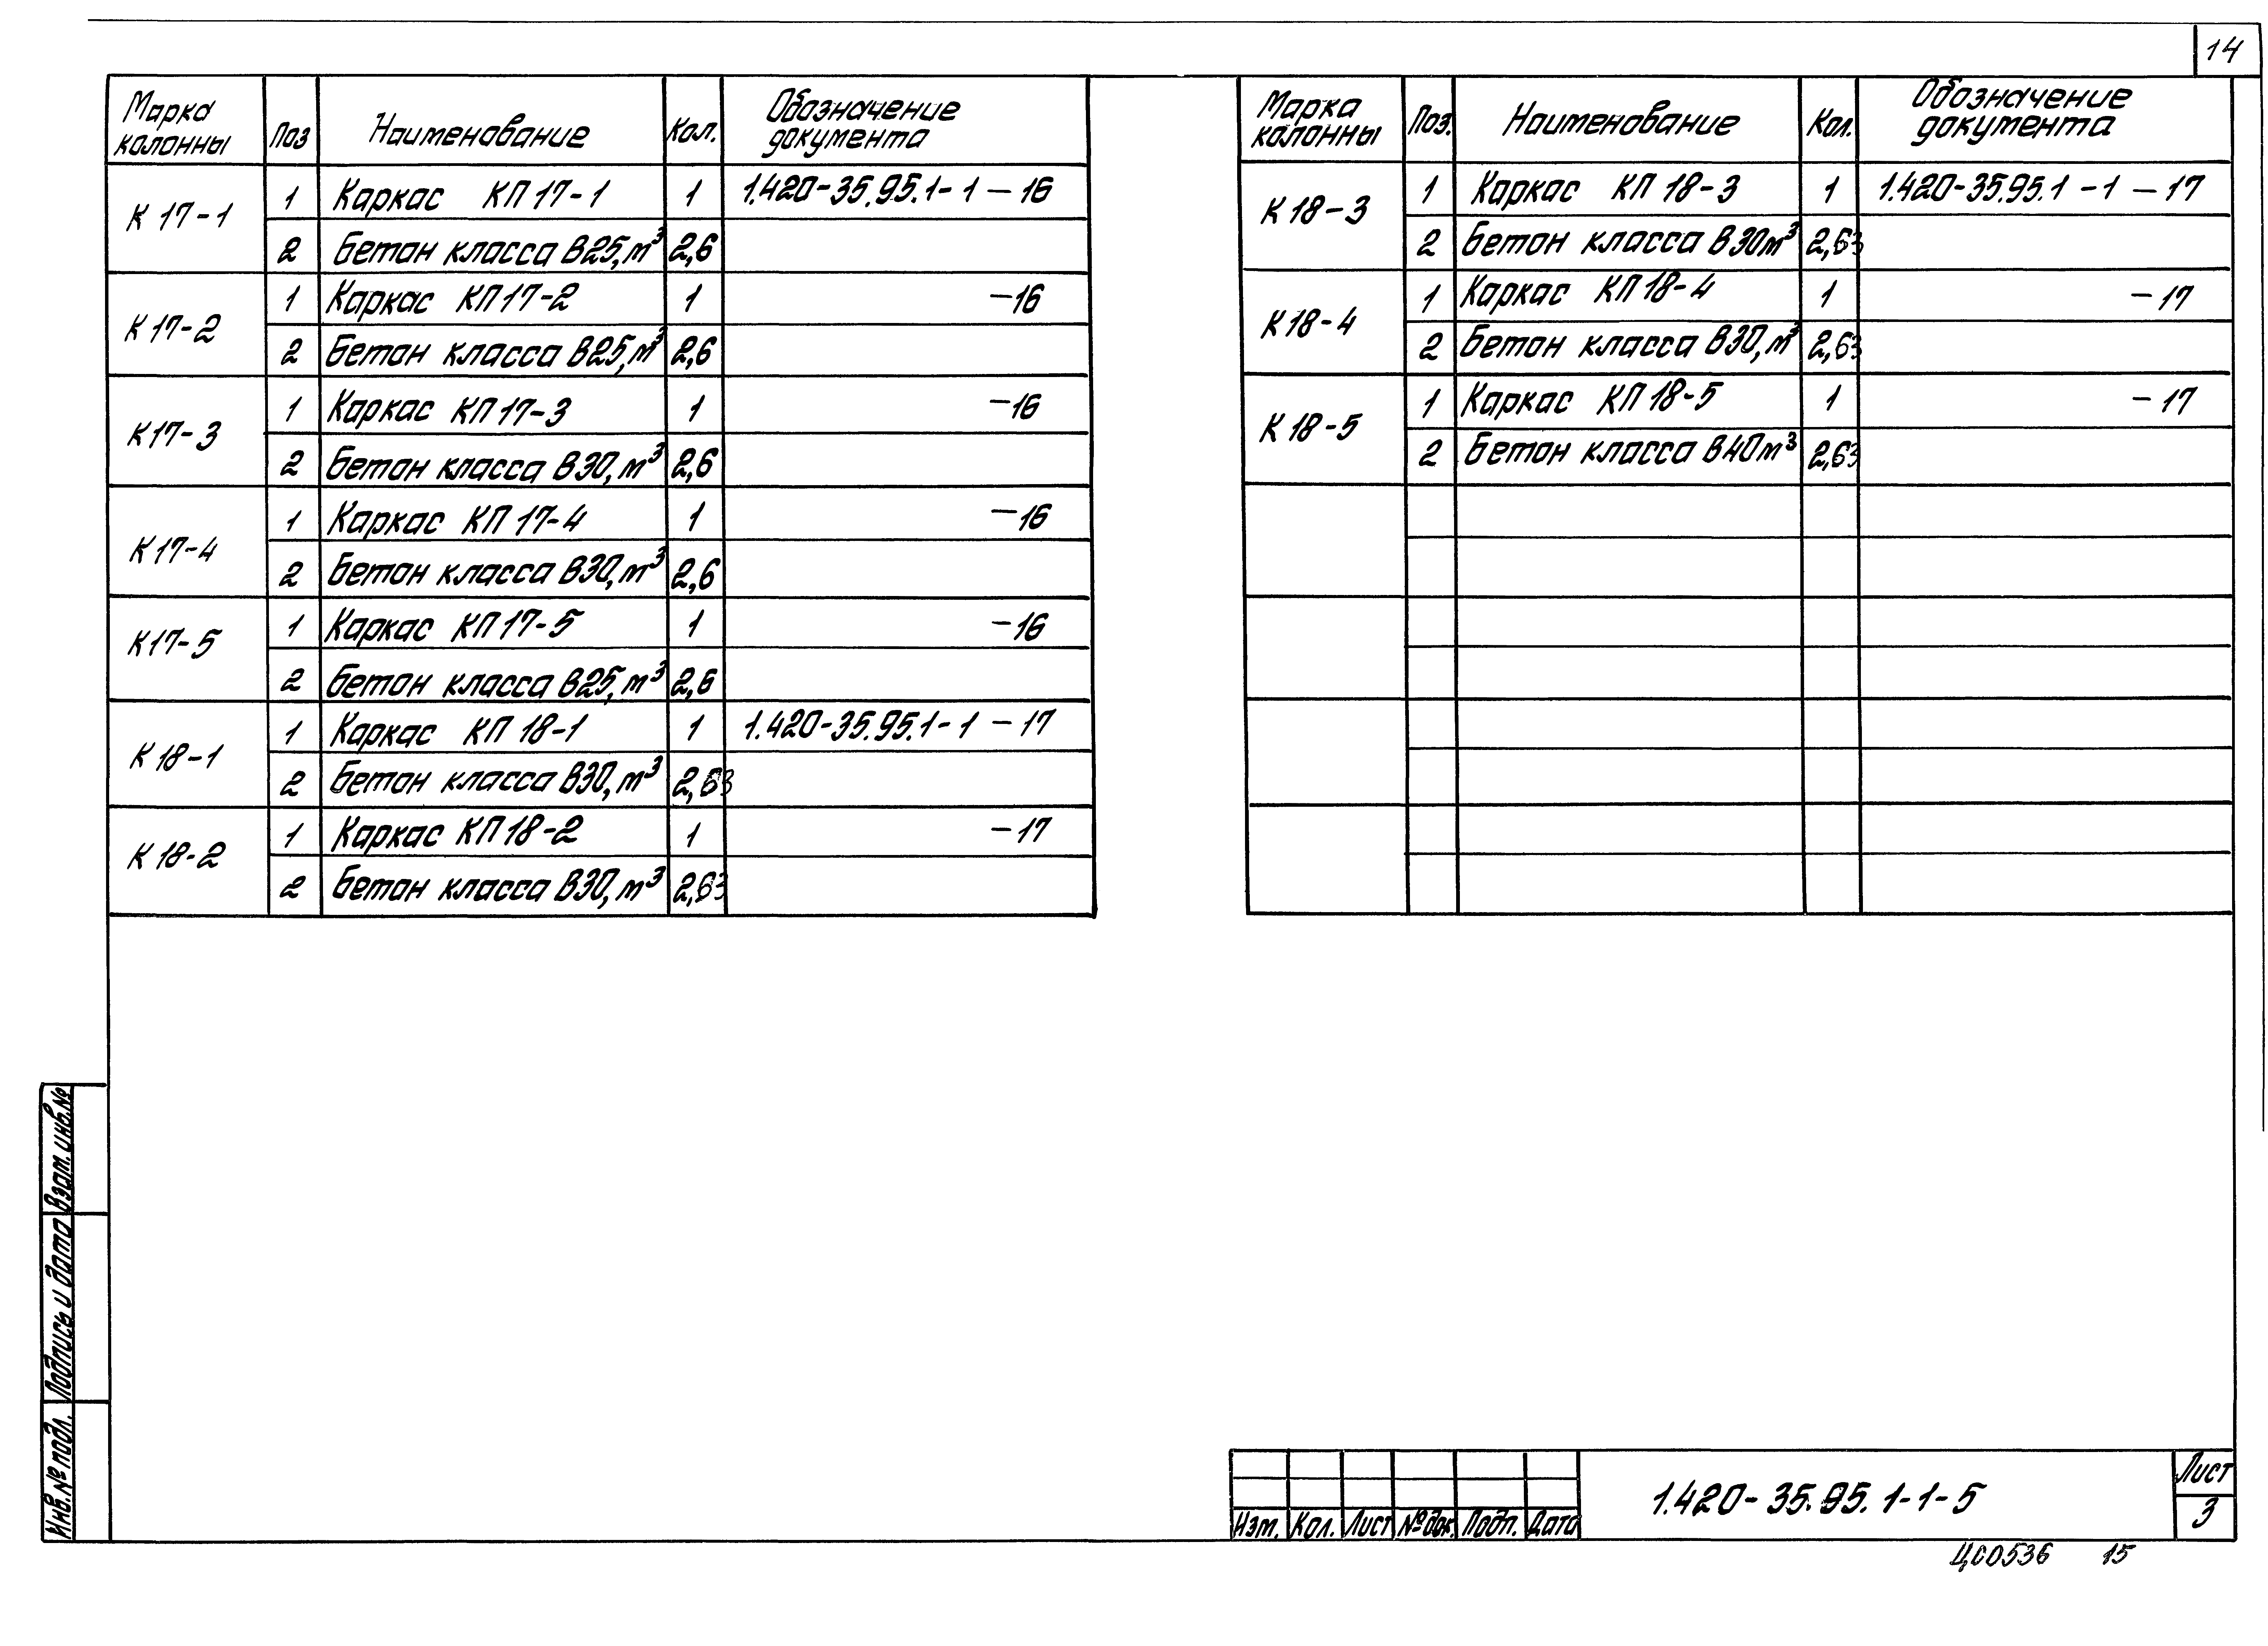 14
Марка колонны Поз Наименование Кол. Обозначение документа
К 17-1 1 Каркас КП 17-1 1 1.420-35.95.1-1 -16
2 Бетон класса В25, м³ 2,6
К 17-2 1 Каркас КП 17-2 1 -16
2 Бетон класса В25, м³ 2,6
К 17-3 1 Каркас КП 17-3 1 -16
2 Бетон класса В30, м³ 2,6
К 17-4 1 Каркас КП 17-4 1 -16
2 Бетон класса В30, м³ 2,6
К 17-5 1 Каркас КП 17-5 1 -16
2 Бетон класса В25, м³ 2,6
К 18-1 1 Каркас КП 18-1 1 1.420-35.95.1-1 -17
2 Бетон класса В30, м³ 2,63
К 18-2 1 Каркас КП 18-2 1 -17
2 Бетон класса В30, м³ 2,63
Марка колонны Поз. Наименование Кол. Обозначение документа
К 18-3 1 Каркас КП 18-3 1 1.420-35.95.1-1 -17
2 Бетон класса В30м³ 2,63
К 18-4 1 Каркас КП 18-4 1 -17
2 Бетон класса В30, м³ 2,63
К 18-5 1 Каркас КП 18-5 1 -17
2 Бетон класса В40м³ 2,63
Взам. инв.№
Подпись и дата
Инв.№ подл.
Изм. Кол. Лист №док. Подп. Дата
1.420-35.95.1-1-5
Лист
3
ЦС0536 15